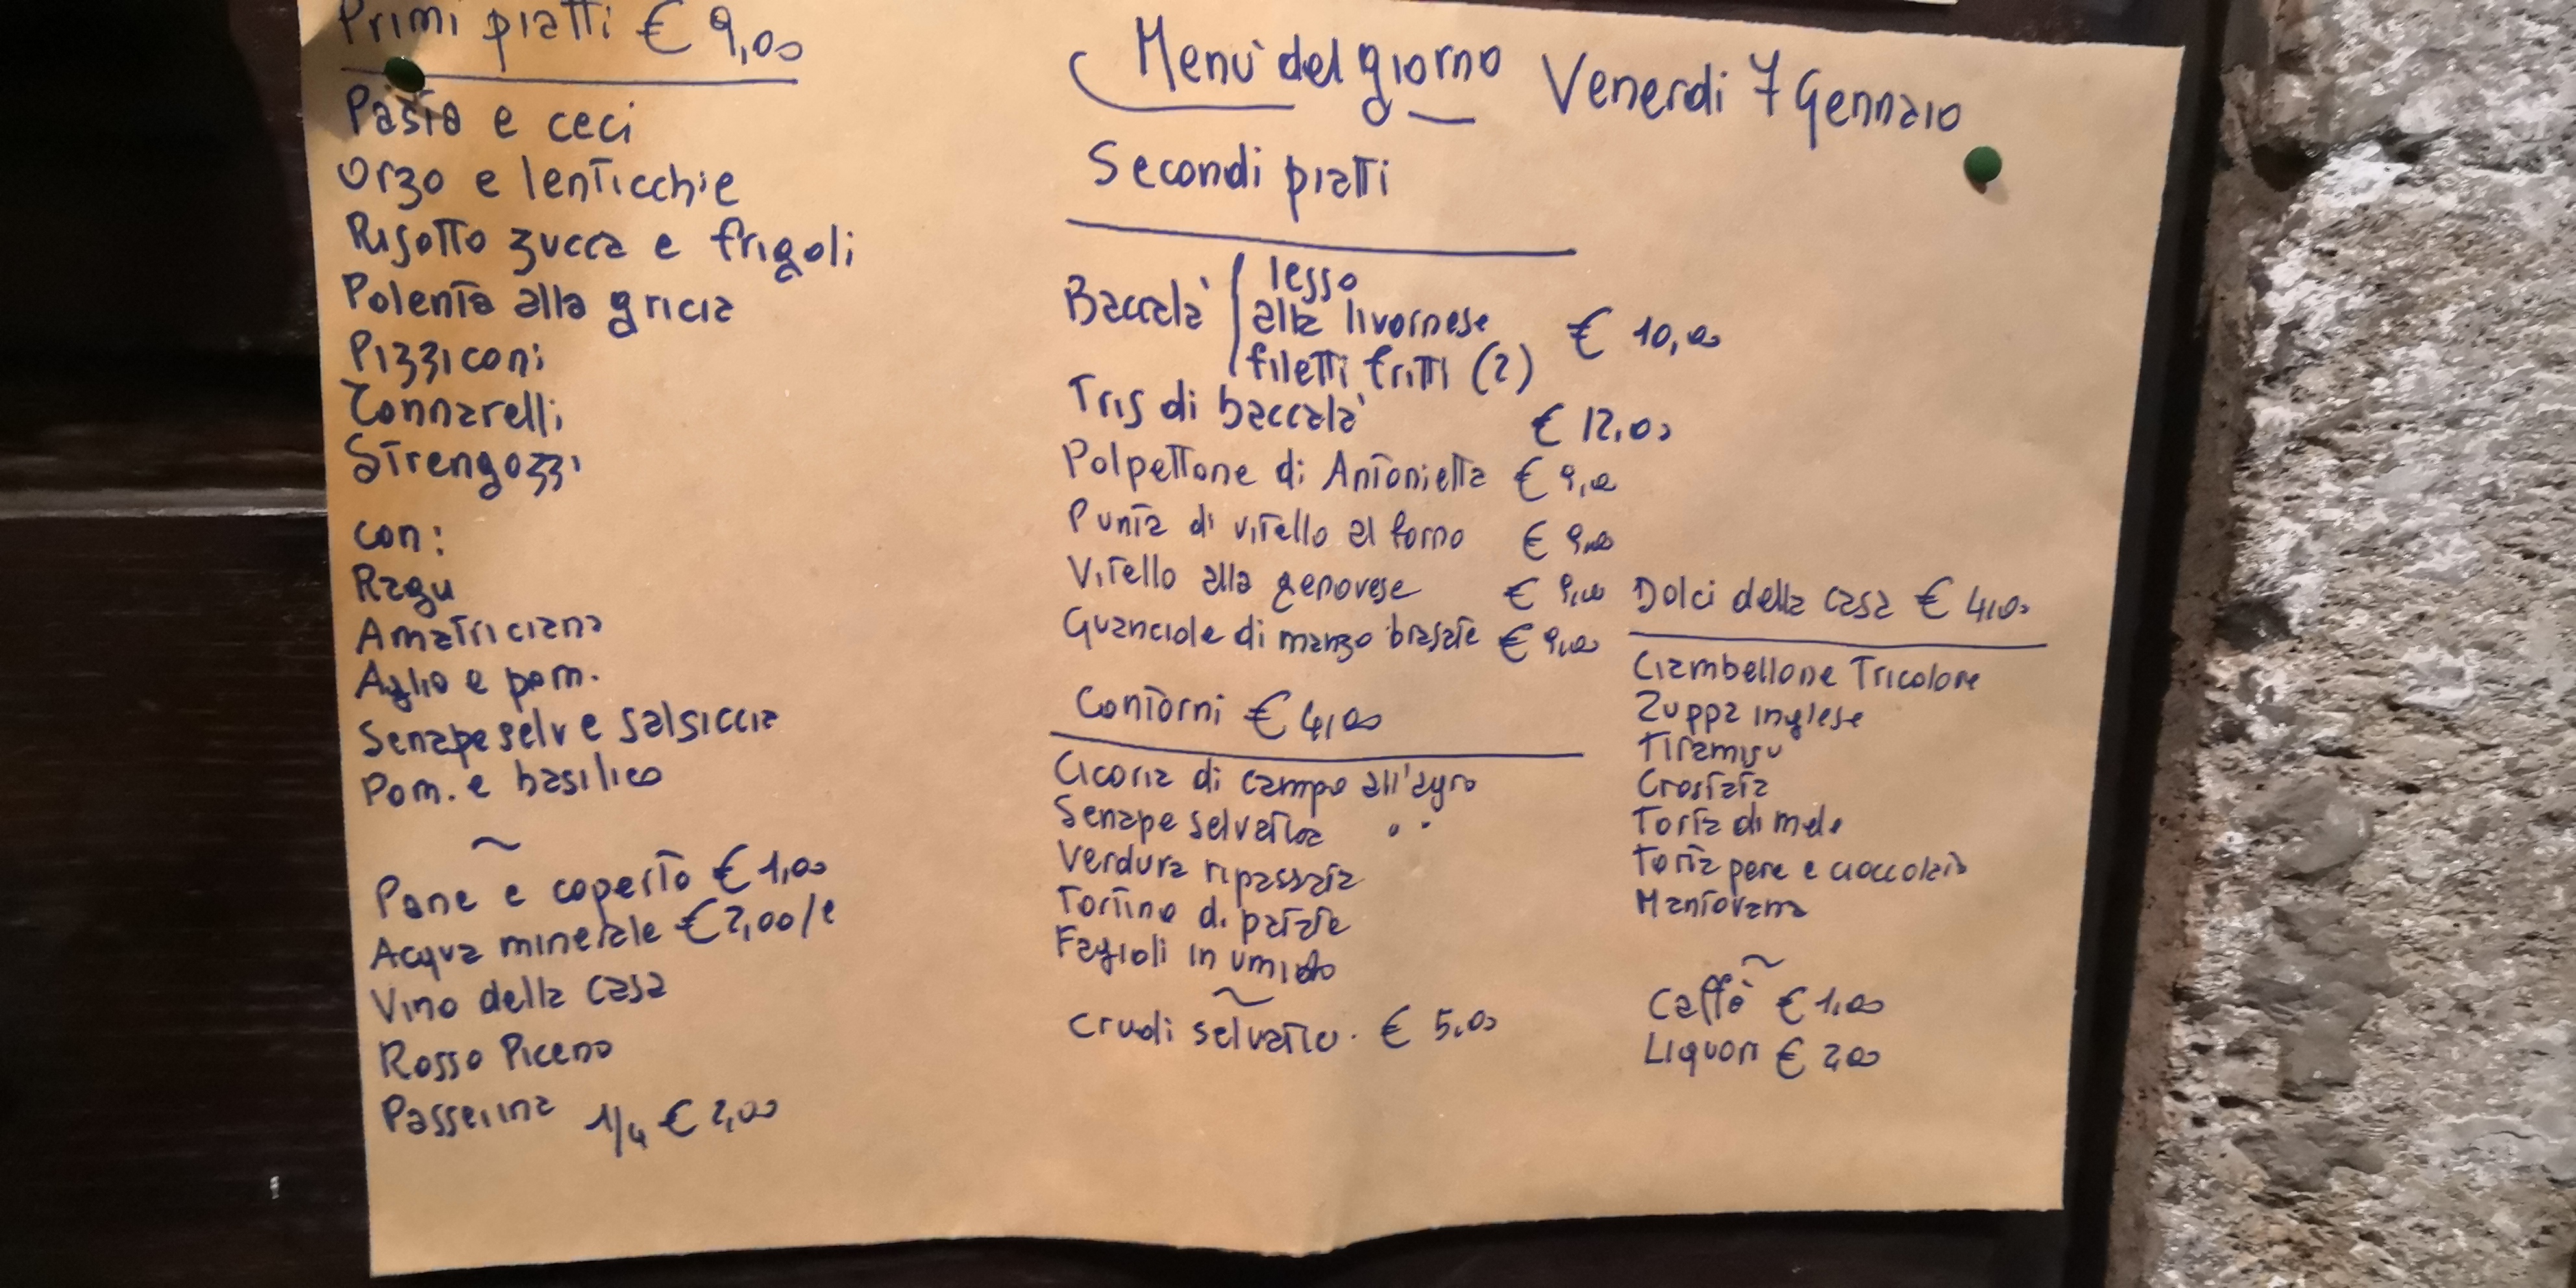 Primi piatti € 9,00
Pasta e ceci
Orzo e lenticchie
Risotto zucca e frigoli
Polenta alla gricia
Pizziconi
Tonnarelli
Strengozzi
con:
Ragu
Amatriciana
Aglio e pom.
Senape selv e salsiccia
Pom. e basilico
~
Pane e coperto € 1,00
Acqua minerale € 2,00/l
Vino della casa
Rosso Piceno
Passerina 1/4 € 2,00
Menu' del giorno Venerdi 7 Gennaio
Secondi piatti
Baccala' lesso
alla livornese € 10,00
filetti fritti (2)
Tris di baccala' € 12,00
Polpettone di Antonietta € 9,00
Punta di vitello al forno € 9,00
Vitello alla genovese € 9,00
Guanciole di manzo brasate € 9,00
Contorni € 4,00
Cicoria di campo all'agro
Senape selvatica " "
Verdura ripassata
Tortino di patate
Fagioli in umido
~
Crudi selvatic. € 5,00
Dolci della casa € 4,00
Ciambellone Tricolore
Zuppa inglese
Tiramisu
Crostata
Torta di mele
Torta pere e cioccolato
Mantovana
~
Caffe' € 1,00
Liquori € 2,00